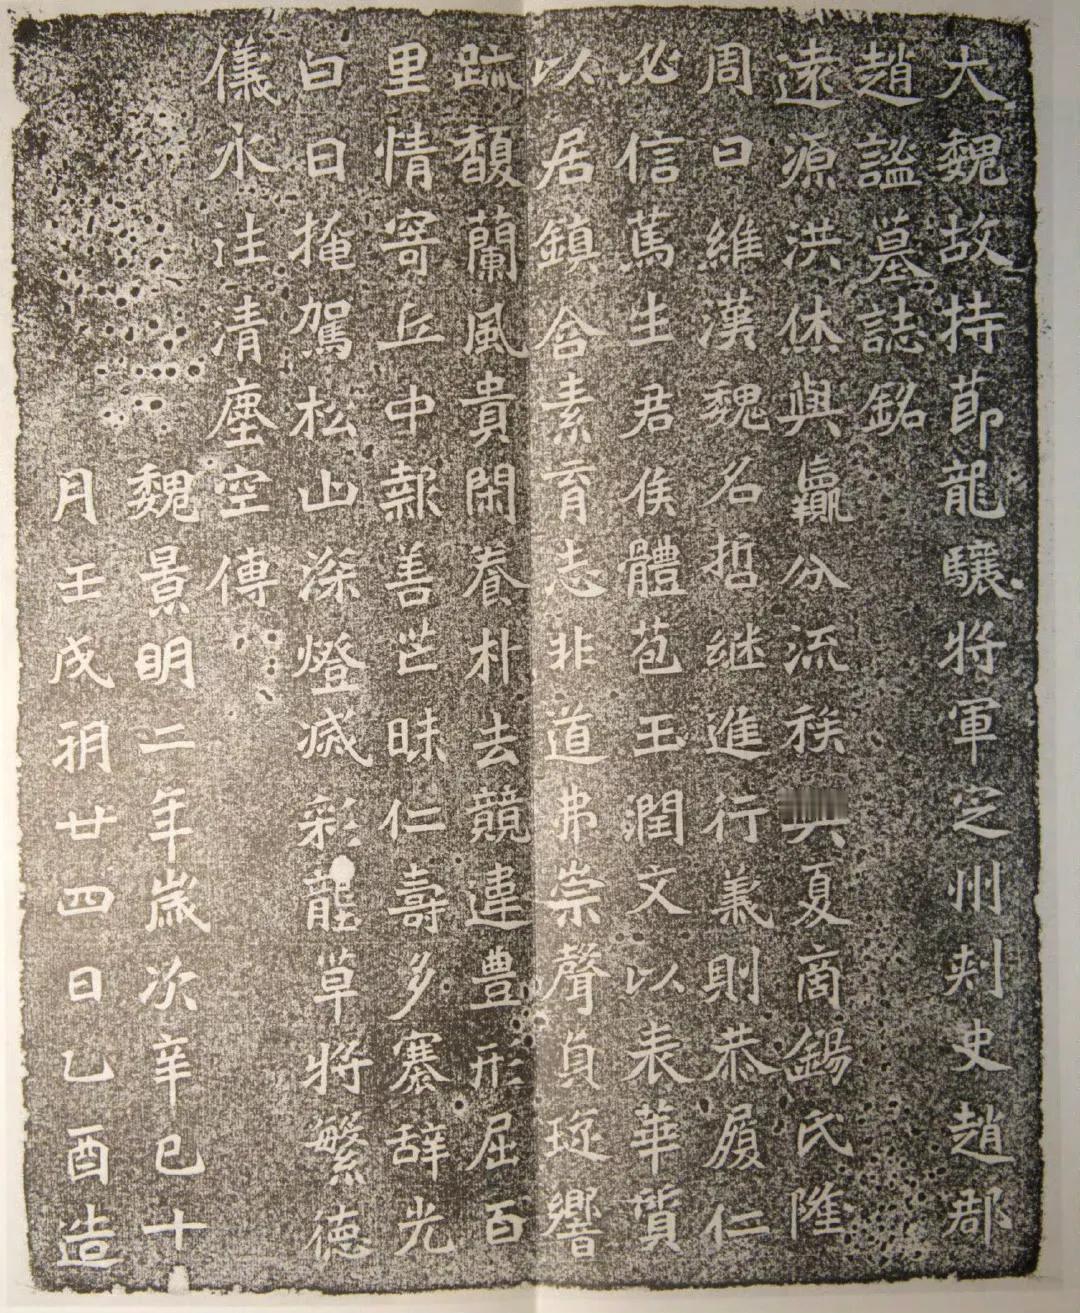 大魏故持節龍驤將軍定州刺史趙郡
趙謐墓誌銘
遠源洪休與嬴分流族夏商錫氏隆
周曰維漢魏名哲継進行義則恭履仁
必信篤生君侯體苞玉潤文以表華質
以居鎮含素育志非道弗崇聲貞琁響
跡馥蘭風貴閑養朴去競違豊形屈百
里情寄丘中報善芒昧仁壽多褰辞光
白日掩駕松山深燈滅彩壟草將繁德
儀永往清塵空傳
魏景明二年歲次辛巳十
月壬戌朔廿四日乙酉造